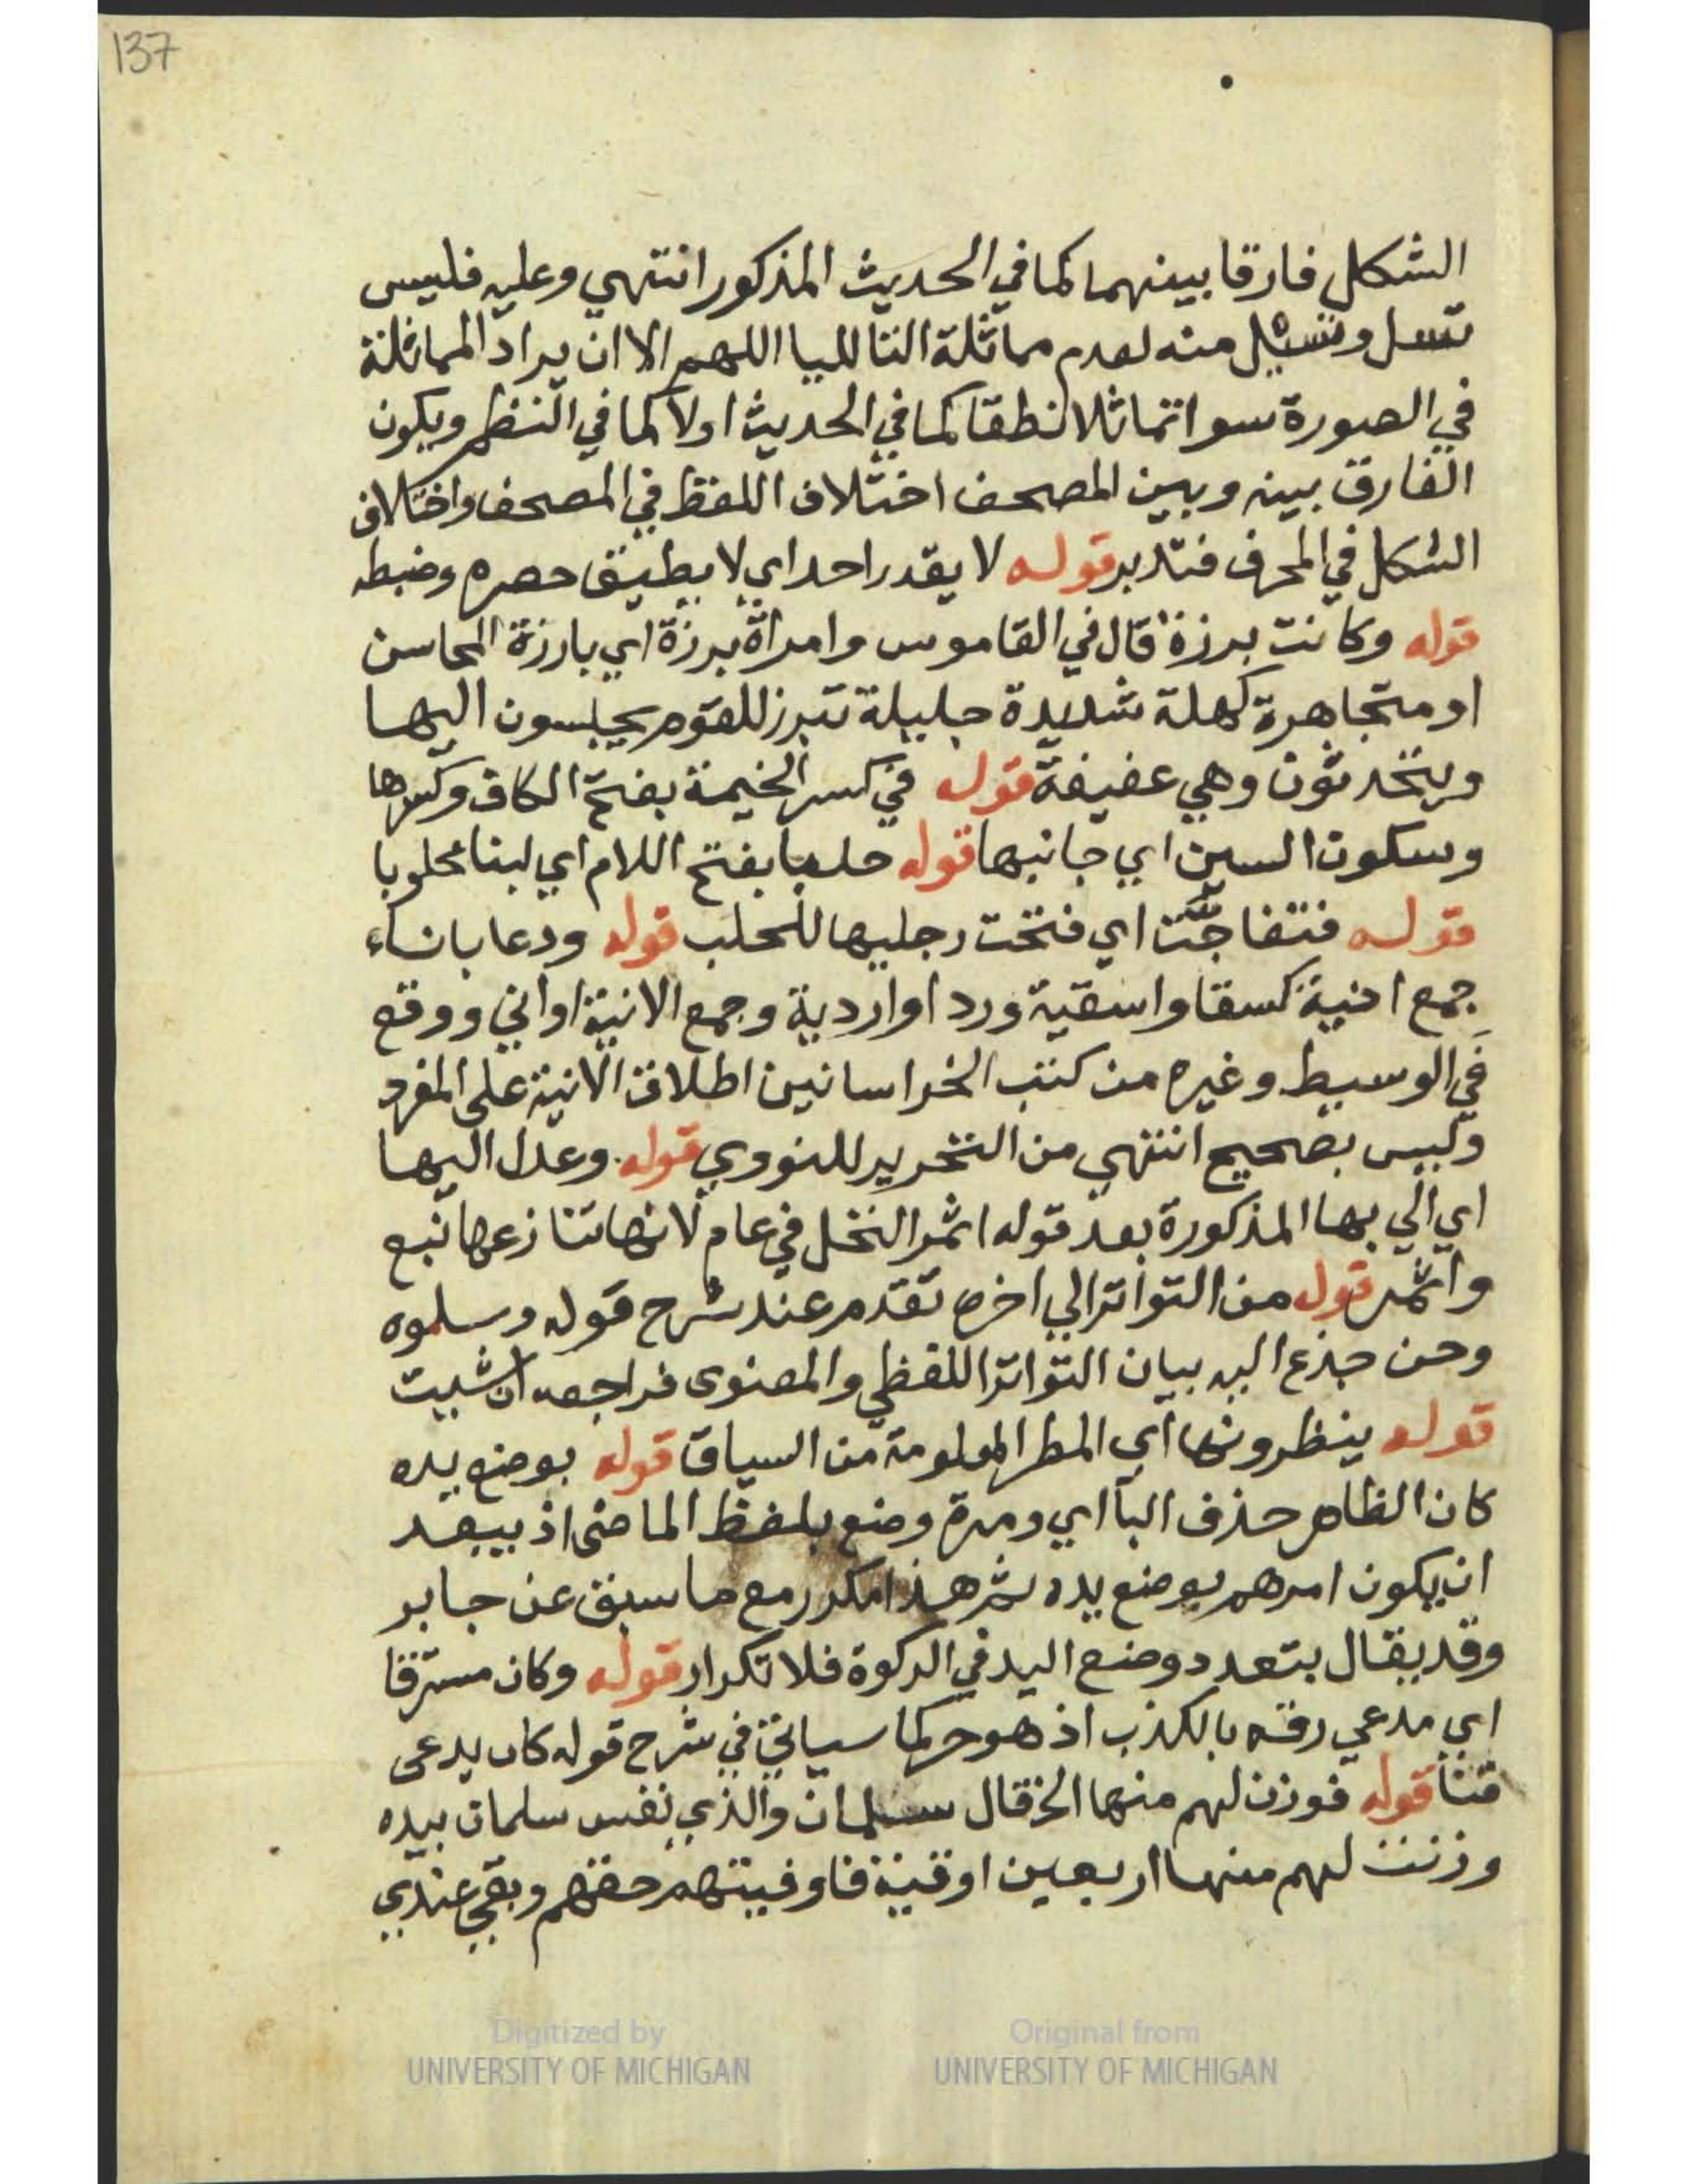 137
الشكل فارقا بينهما كما في الحديث المذكور انتهي وعليه فليس
تسل وتسيل منه لعدم مماثلة التا لليا اللهم الا ان يراد المماثلة
في الصورة سوا تماثلا نطقا كما في الحديث اولا كما في النظم ويكون
الفارق بينه وبين المصحف اختلاف اللفظ في المصحف واختلاف
الشكل في المحرف فتدبر قوله لا يقدر احد اي لا يطيق حصره وضبطه
قوله وكانت برزة قال في القاموس وامراة برزة اي بارزة المحاسن
او متجاهرة كهلة شديدة جليلة تبرز للقوم يجلسون اليها
ويتحدثون وهي عفيفة قوله في كسر الخيمة بفتح الكاف وكسرها
وسكون السين اي جانبها قوله حلبا بفتح اللام اي لبنا محلوبا
قوله فتفاجّت اي فتحت رجليها للحلب قوله ودعا باناء
جمع انية كسقا واسقية وردا واردية وجمع الانية اواني ووقع
في الوسيط وغيره من كتب الخراسانين اطلاق الانية على المفرد
وليس بصحيح انتهي من التحرير للنووي قوله وعدل اليها
اي الي بها المذكورة بعد قوله اثمر النخل في عام لانها تنازعها نبع
واثمر قوله من التواتر الي اخره تقدم عند شرح قوله وسلموه
وحن جذع اليه بيان التواتر اللفظي والمعنوى فراجعه ان شيت
قوله ينظرونها اي المطر المعلومة من السياق قوله بوضع يده
كان الظاهر حذف البا اي ومرة وضع بلفظ الماضى اذ يبعد
ان يكون امرهم بوضع يده ثم هذا مكرر مع ما سبق عن جابر
وقد يقال بتعدد وضع اليد في الركوة فلا تكرار قوله وكان مسترقا
اي مدعي رقه بالكذب اذ هو حر كما سياتي في شرح قوله كان يدعى
قنا قوله فوزن لهم منها الخ قال سلمان والذي نفس سلمان بيده
وزنت لهم منها اربعين اوقية فاوفيتهم حقهم وبقي عندي
Digitized by
UNIVERSITY OF MICHIGAN
Original from
UNIVERSITY OF MICHIGAN